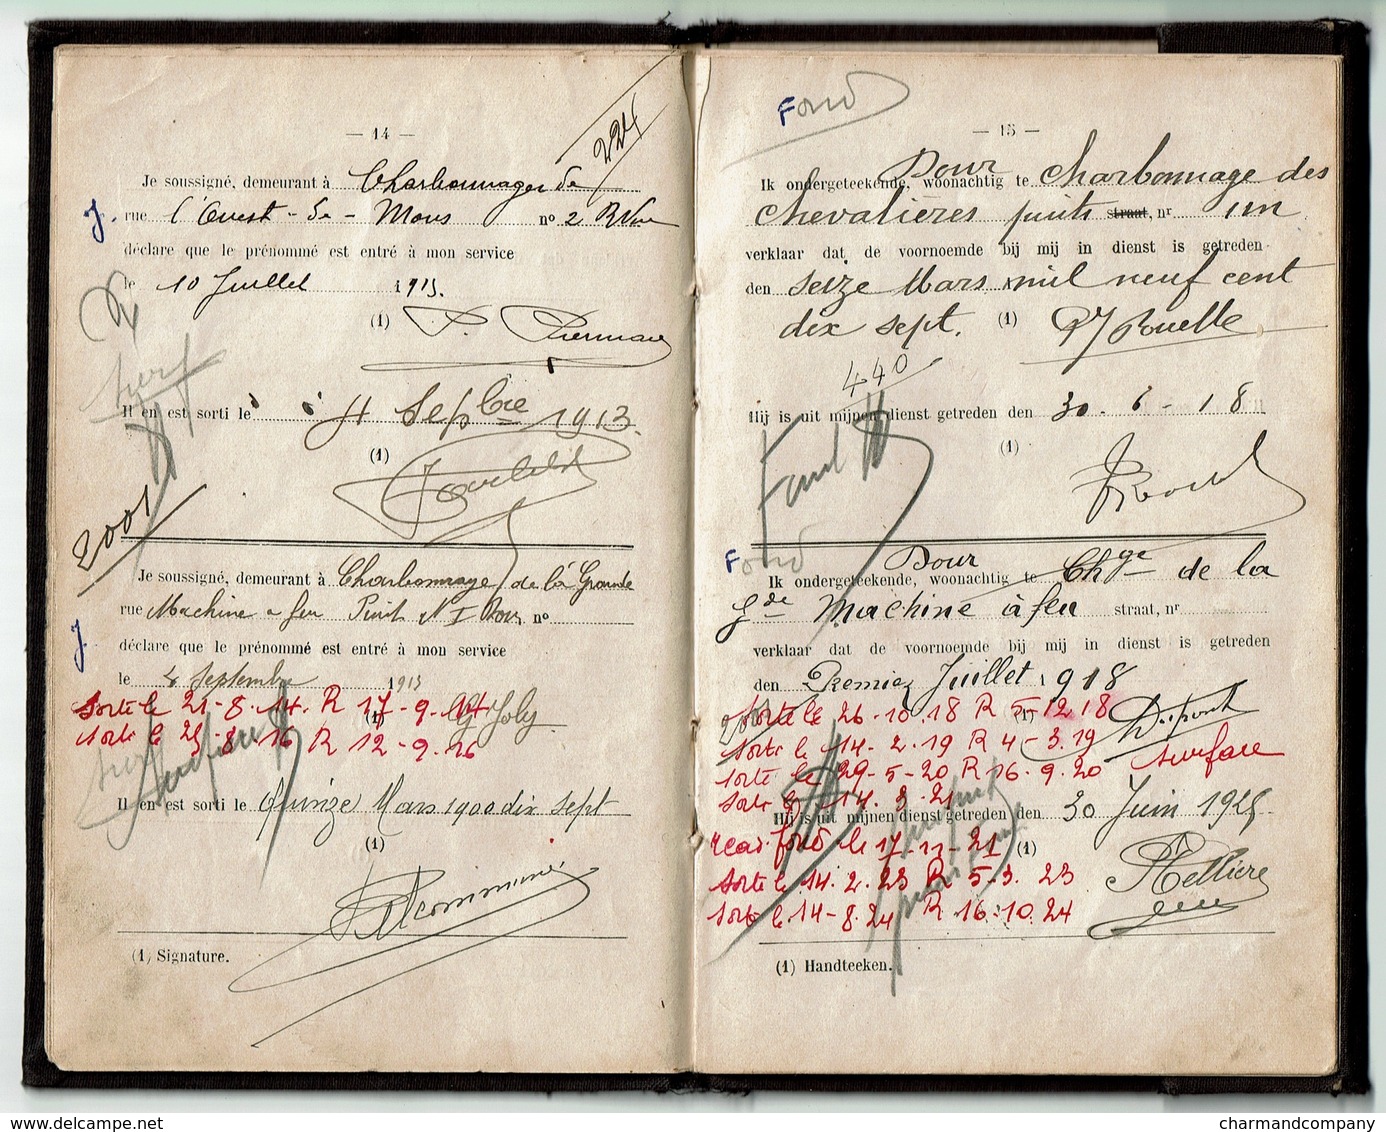 — 14 —
224
Je soussigné, demeurant à Charbonnages de
J. rue l'Ouest-de-Mons nº 2
déclare que le prénommé est entré à mon service
le 10 Juillet 1913.
(1)
surf
Il en est sorti le 4 Sepbre 1913
(1)
2001
Je soussigné, demeurant à Charbonnage de la Grande
rue Machine à feu Puits Nº I Dour nº
J.
déclare que le prénommé est entré à mon service
le 4 Septembre 1913
Sorti le 21-8-14. R 17-9-14
(1) Joly
Sorti le 25-8-16 R 12-9-16
surf
Il en est sorti le Quinze Mars 1900 dix sept
(1)
(1) Signature.
Fond
— 15 —
Dour
Ik ondergeteekende, woonachtig te Charbonnage des
Chevalières puits straat, nr 1
verklaar dat de voornoemde bij mij in dienst is getreden
den seize Mars mil neuf cent
dix sept. (1)
440
Hij is uit mijnen dienst getreden den 30-6-18
(1)
Fond
Fond
Dour
Ik ondergeteekende, woonachtig te Chge de la
Gde Machine à feu straat, nr
verklaar dat de voornoemde bij mij in dienst is getreden
den Premier Juillet 1918
2001
Sorti le 26-10-18 R 5-12 18
(1) Dupont
Sorti le 14-2-19 R 4-3-19
surface
Sorti le 29-5-20 R 16-9-20
Sorti le 14-3-21
Hij is uit mijnen dienst getreden den 30 Juin 1925
fond le 17-11-21 (1)
Sorti le 14-2-23 R 5-3-23
Sorti le 14-8-24 R 16-10-24
(1) Handteeken.
delcampe.net
charmandcompany